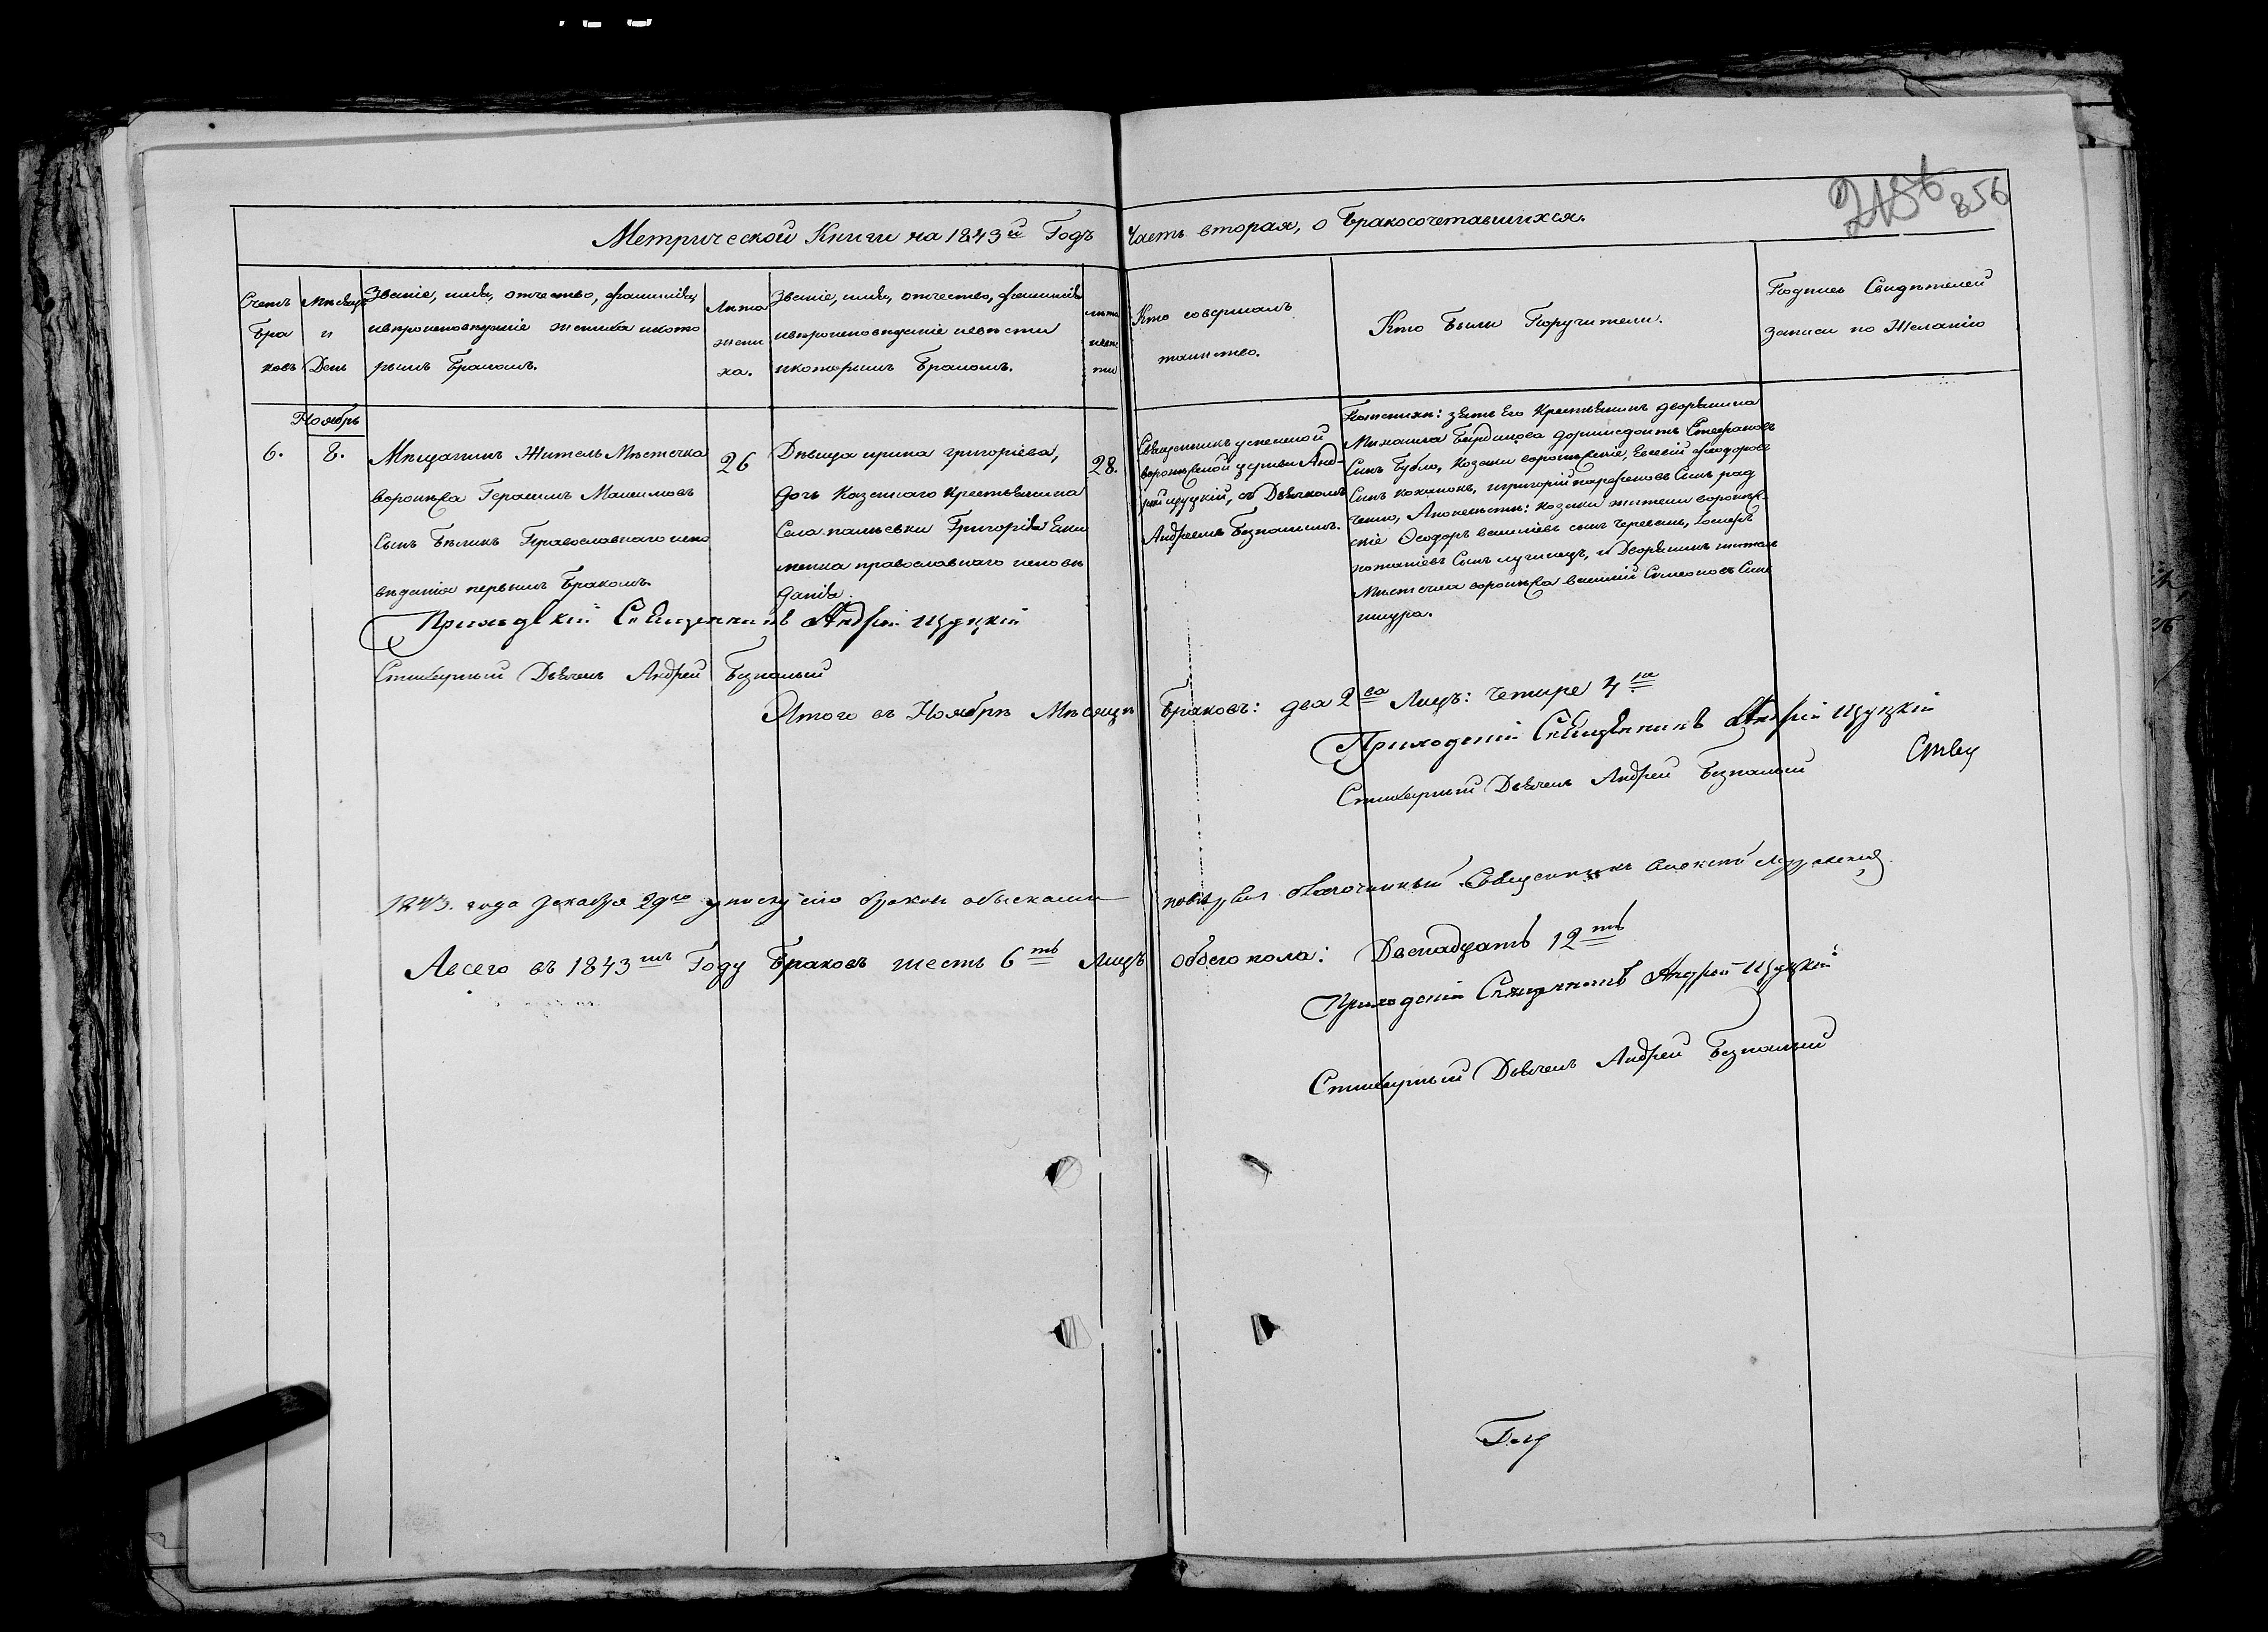 856
Метрической Книги на 1843й Годъ Часть вторая, о Бракосочетавшихся.
Счетъ Бра ковъ
Мѣсяцъ и День
Званіе, имя, отчество, фамилія,
ивѣроисповѣданіе жениха икото
рымъ Бракомъ.
Лѣта жени ха.
Званіе, имя, отчество, фамилія
ивѣроисповѣданіе невѣсти
икоторимъ Бракомъ.
лѣта невѣ сти
Кто совершалъ
таинство.
Кто Были Поручители.
Подпись Свидѣтелей
записи по Желанію
Ноябрь
6. 8.
Мѣщанинъ Житель Мѣстечка
воронѣжа Герасимъ Максимовъ
Сынъ Бѣликъ Православнаго испо
вѣданія первымъ Бракомъ.
26
Дѣвица ирина григоріева,
дочь Казеннаго Крестьянина
Села Григорія Яки
менка православнаго исповѣ
данія.
28.
Священникъ успенской
воронѣжской церкви Анд-
рей щуцкій, съ Дьячкомъ
Андреемъ Безпалимъ.
Поженихѣ: зять Его Крестьянинъ дворянина
Михаила Стефановъ
Сынъ Бубло, Козаки воронѣжскіе, Евсевій феодоровъ
Сынъ игригорій парфеновъ Сынъ рад
ченко, Апоневѣстѣ: козаки жители воронѣж
скіе Феодоръ василіевъ сынъ
Сынъ и Дворянинъ житель
Мѣстечка воронѣжа василій Симеоновъ Синъ
Приходскій Священникъ Андрей Щуцкій
Стихарный Дьячекъ Андрей Безпалый
Итого въ Ноябрѣ Мѣсяцѣ Браковъ: два 2ва Лицъ: четире 4ре
Приходскій Священникъ Андрей Щуцкій
Стихарный Дьячекъ Андрей Безпалый
1843. года декабря 29го сію браковъ собысками Благочинный Священникъ Алексій
Авсего въ 1843мъ Году Браковъ шесть 6ть Лицъ обоего пола: Двенадцать 12ть
Приходскій Священникъ Андрей Щуцкій
Стихарный Дьячекъ Андрей Безпалый